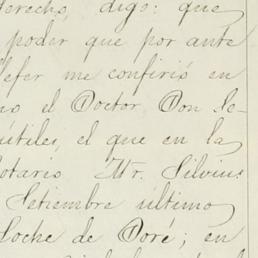 derecho, digo: que
poder que por ante
lefer me confirió en
no el Doctor Don Le-
útiles, el que en la
otario Mr. Silvius
Setiembre último
Locke de Doré; en